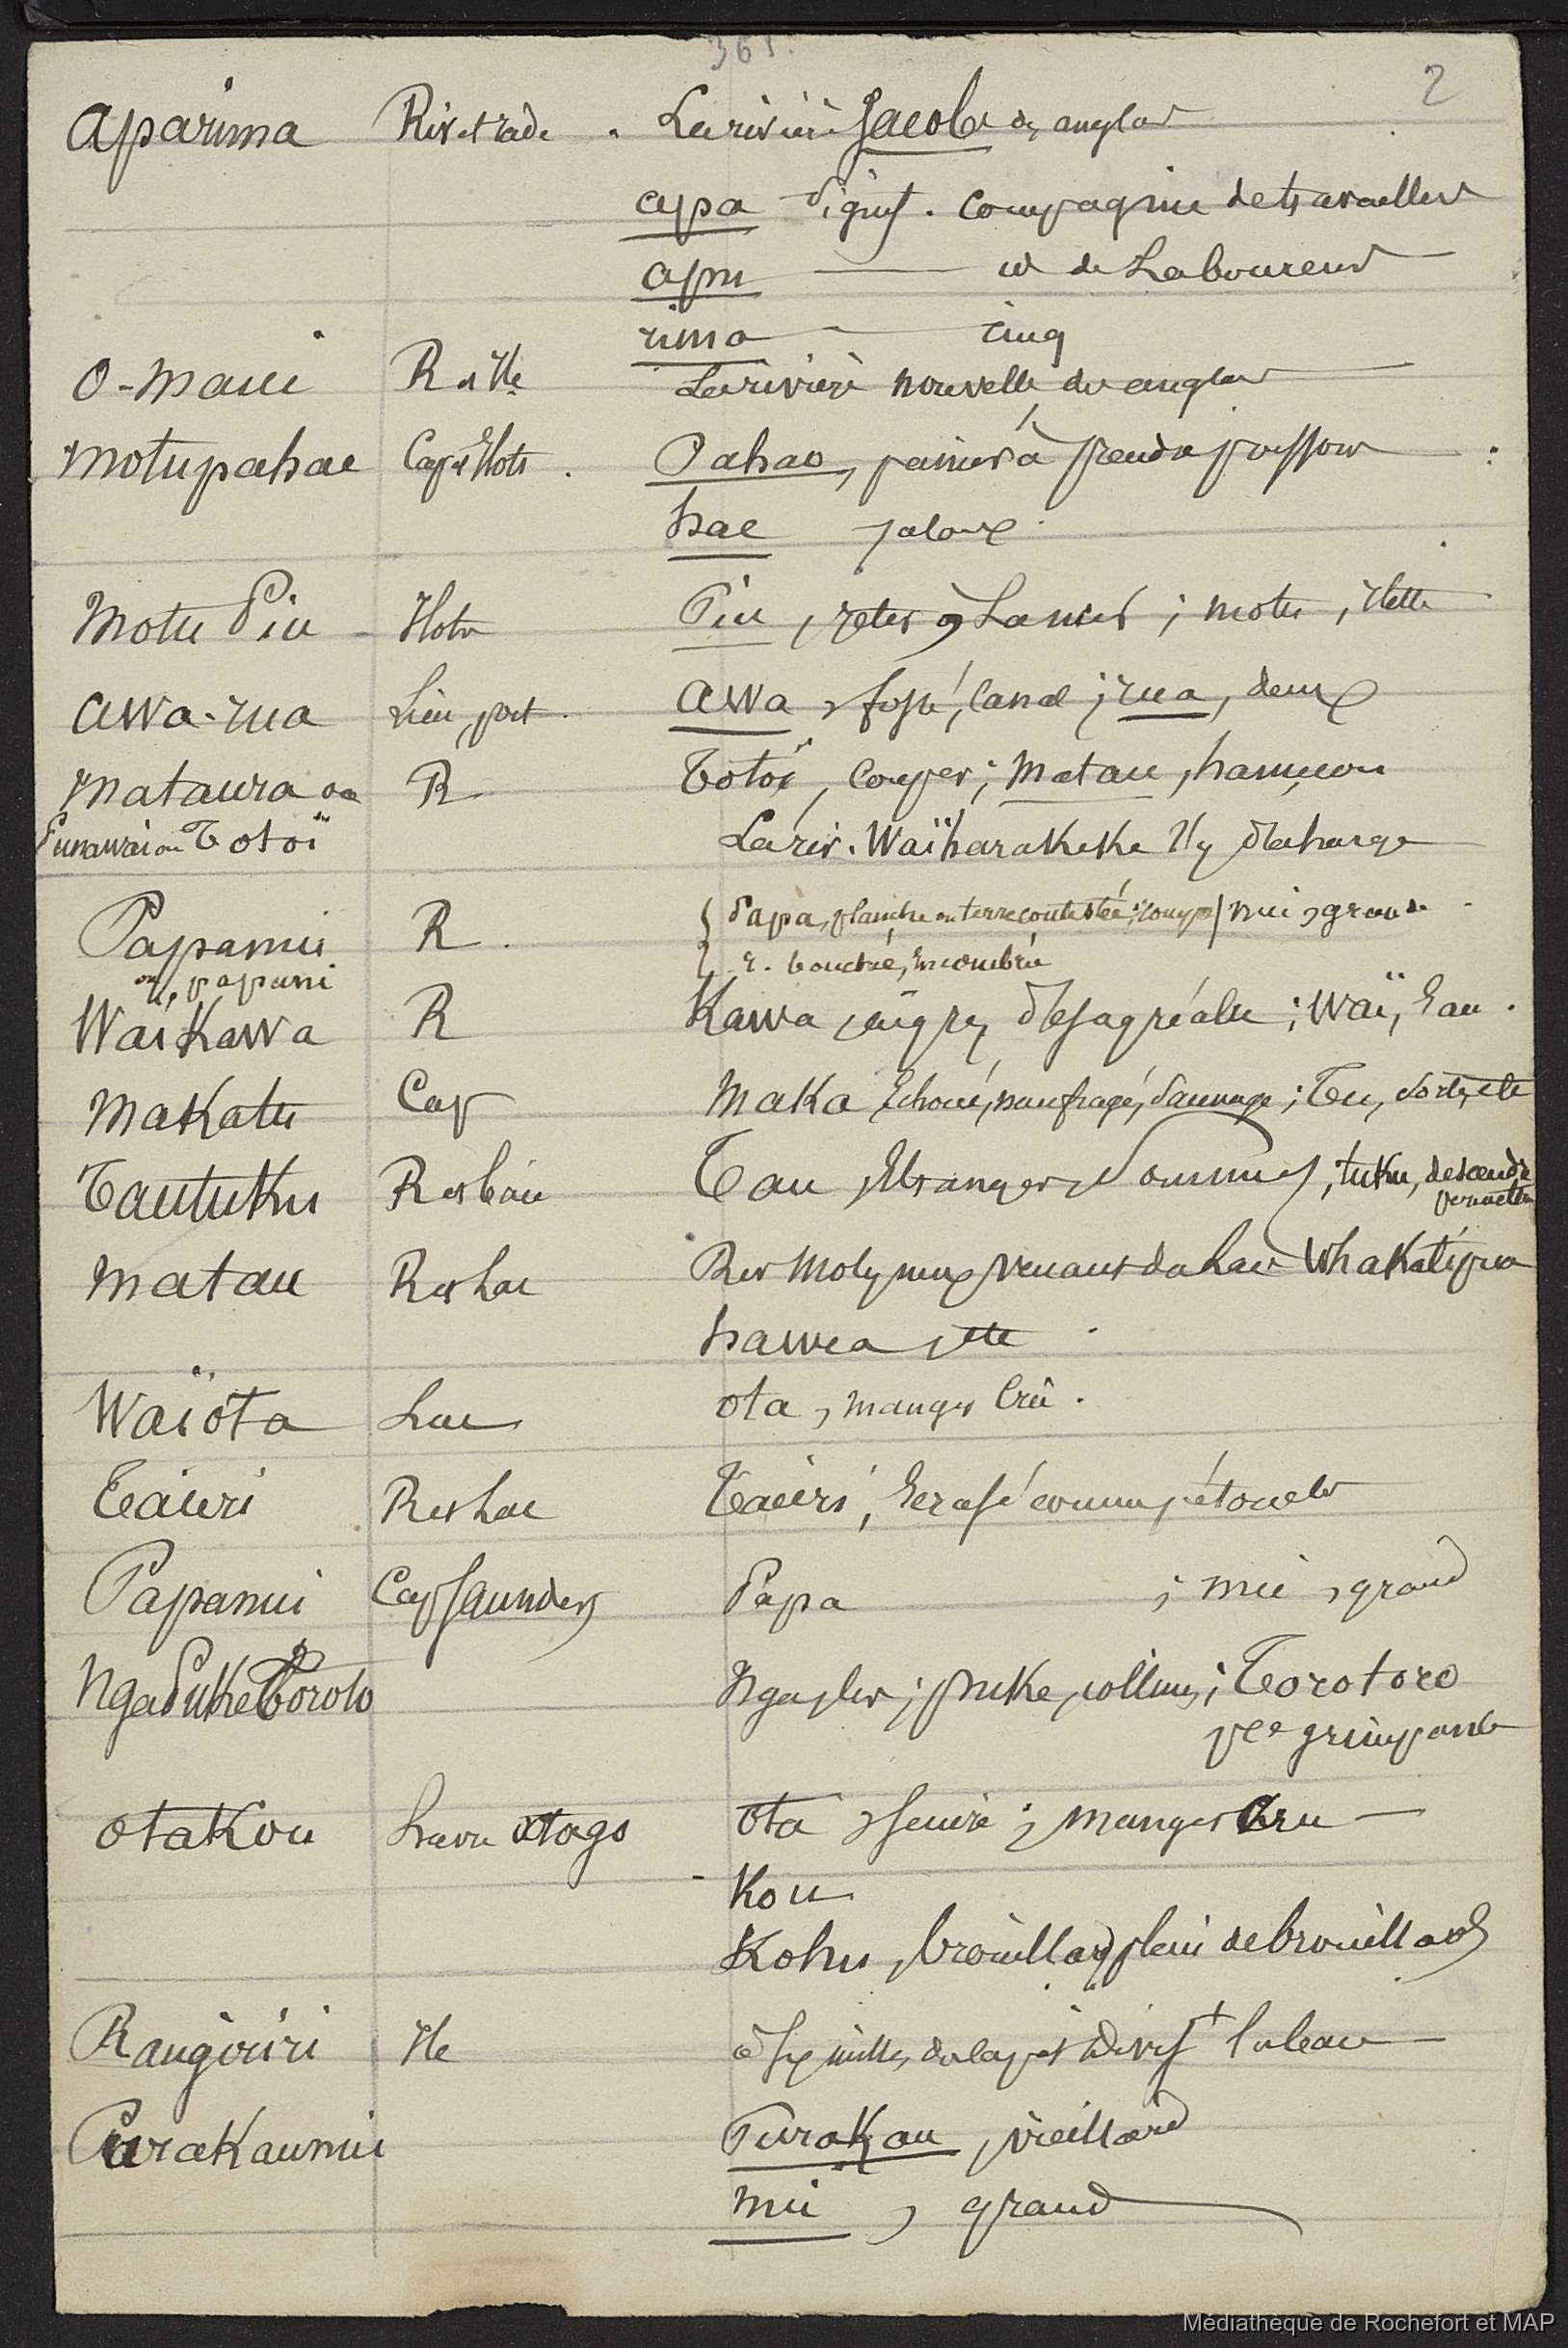 365.
2
Aparima Riv et rade . La rivière Jacob des anglais
apa signif. Compagnie de travailleurs
apu id de Laboureurs
rima cinq
O-maui R et Ile La rivière nouvelle des anglais
Motupahae Cap et Ilots . Pahao, panier à prendre poissons
hae jaloux
Motu Piu Ilots Piu, jeter, Lancer ; motu, Ilette
Awa-rua Lieu, port . Awa, fossé, Canal ; rua, deux
Mataura ou R Totoï, Couper ; Matau, hameçon
ou Totoï La riv. Waïharakeke s'y décharge
Papamui R . Papa, planche ou terre contestée ; mui, grande
ou papuni bouché, encombré
Waïkawa R Kawa, aigre, désagréable ; Waï, Eau .
Makatu Cap Maka Echoué, naufragé, Sauvage ; Tu,
Tautuku R et baie Tau, Etranger, ; tuku, descendre
permettre
Matau R et Lac Riv Molyneux venant du Lac Whakatipua
hawea
Waïota Lac Ota, manger Crû .
Taiuri R et Lac écrasé comme
Papanui Cap Saunders Papa ; nui, grand
NgaPukeToroto Nga, les ; puke, collines ; Torotoro
pte grimpante
Otakou havre Otago Ota ; manger Cru
Kou
Kohu, brouillard, plein de brouillards
Rangiriri Ile
Purakaunui Purakau, vieillard
nui , grand
Médiathèque de Rochefort et MAP